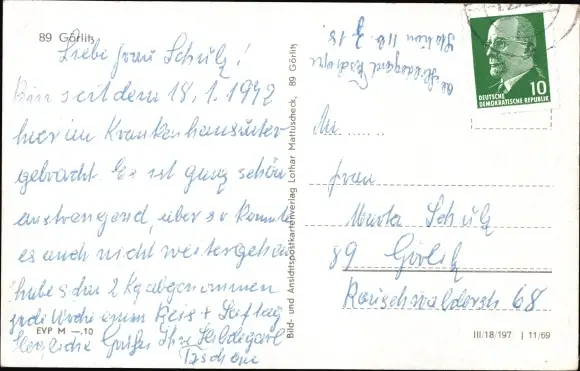 89 Görlitz
Liebe Frau Schulz!
Bin seit dem 18.1.1972
hier im Krankenhaus unter
gebracht. Es ist ganz schön
anstrengend, aber so konnte
es auch nicht weitergehen
habe schon 2 Kg abgenommen
jede Woche einen Reis + Safttag
Herzliche Grüße Ihre Hildegard
EVP M —.10
Bild- und Ansichtspostkartenverlag Lothar Mattuscheck, 89 Görlitz
Abs. Hildegard
Station II b. Z 18
DEUTSCHE
DEMOKRATISCHE REPUBLIK
10
An
Frau
Marta Schulz
89 Görlitz
Rauschwalderstr 68
III/18/197 J 11/69